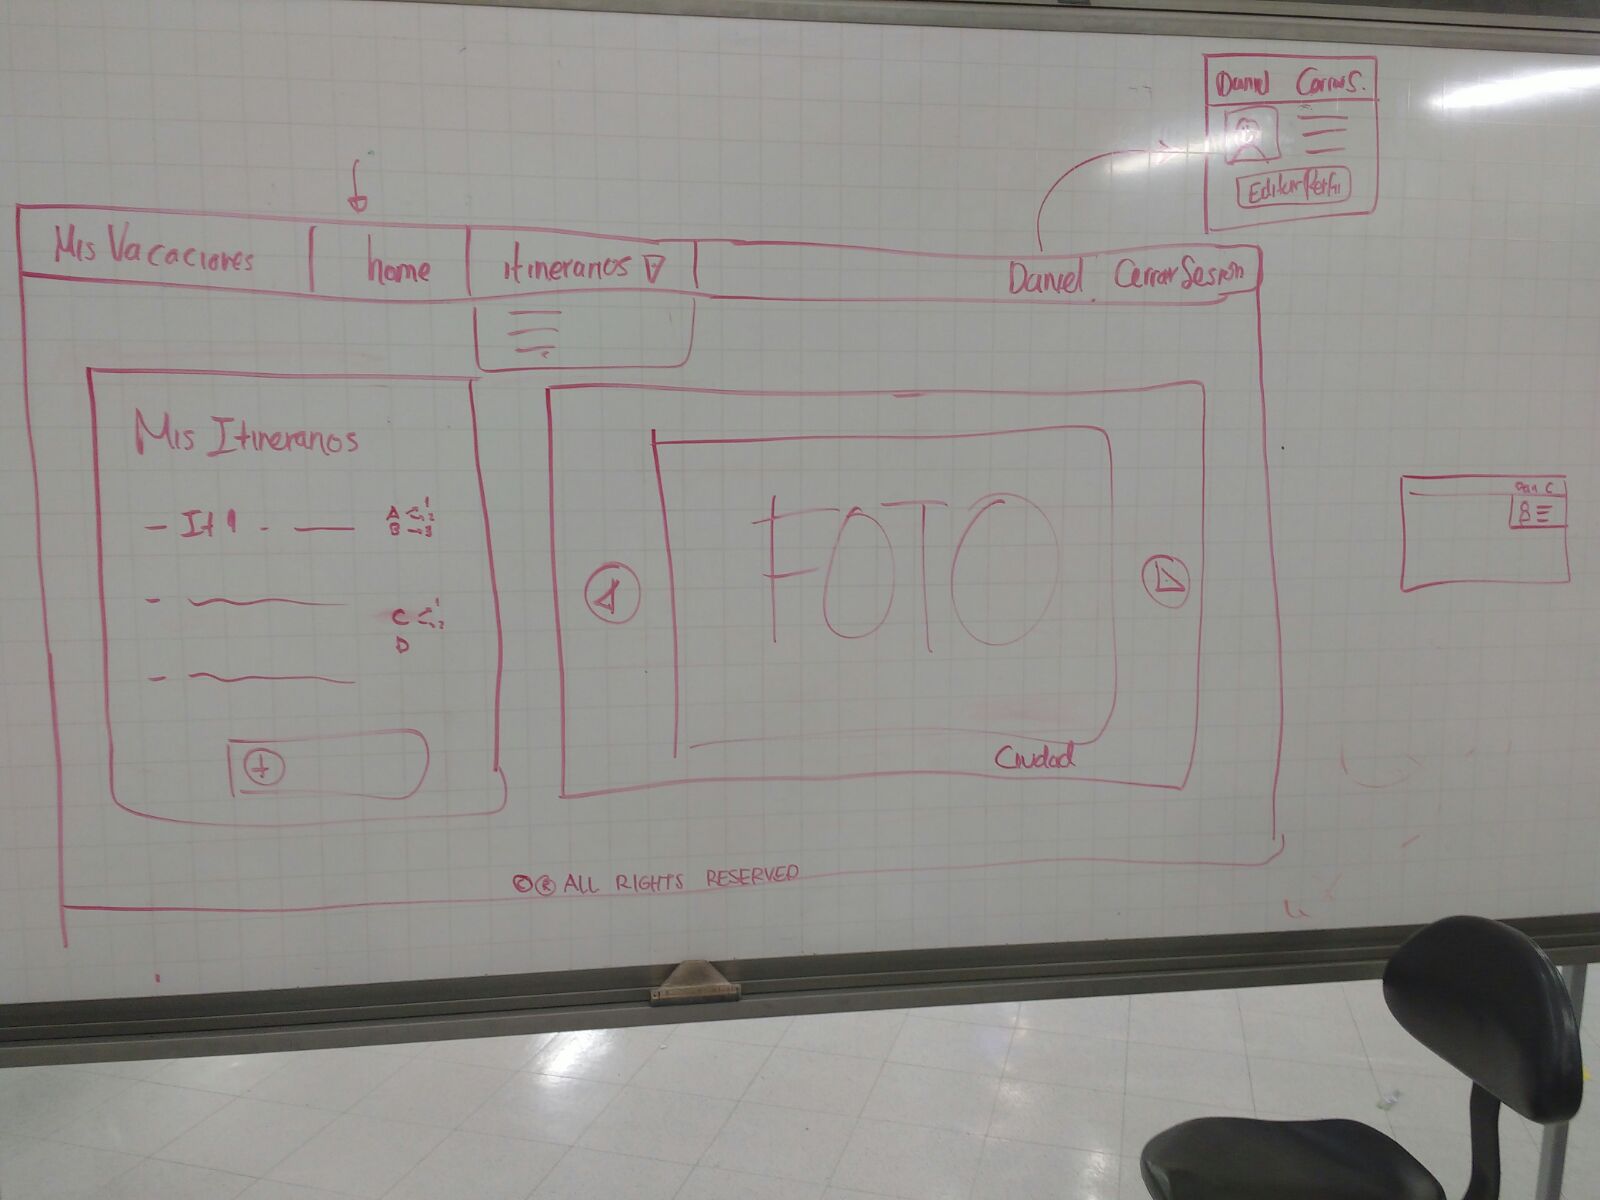 Daniel Cerrar S.
Editar Perfi
Mis Vacaciones home itinerarios Daniel Cerrar Sesion
Mis Itinerarios
- It 1 -
A 1
2
B → 3
C 1
2
D
+
FOTO
Ciudad
© ® ALL RIGHTS RESERVED